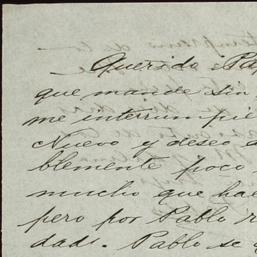 Querido Pap
que mande sin
me interrumpie
Nuevo y deseo d
blemente poco
mucho que hac
pero por Pablo i
dads. Pablo se